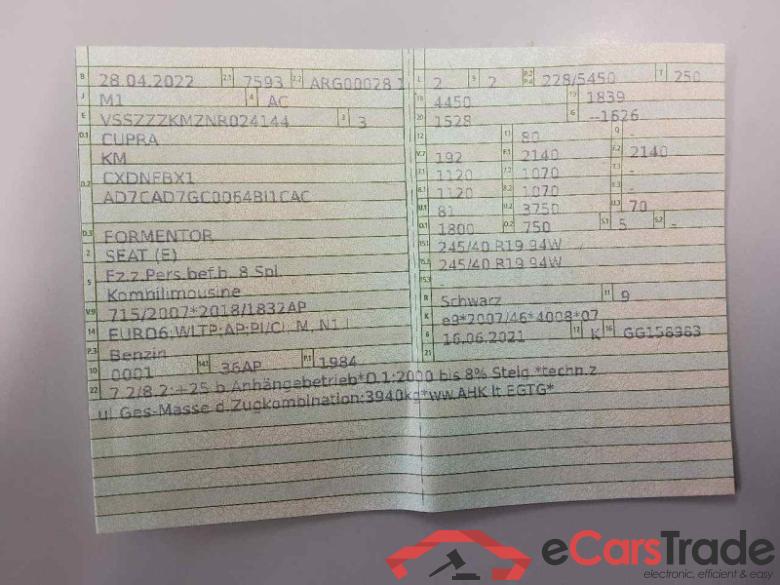 B 28.04.2022 2.1 7593 2.2 ARG00028 1
J M1 4 AC
E VSSZZZKMZNR024144 3 3
D.1 CUPRA
KM
D.2 CXDNFBX1
AD7CAD7GC0064BI1CAC
D.3 FORMENTOR
2 SEAT (E)
5 Fz.z.Pers.bef.b. 8 Spl.
Kombilimousine
V.9 715/2007*2018/1832AP
14 EURO6;WLTP;AP;PI/CI, M, N1 I
P.3 Benzin
10 0001 14.1 36AP P.1 1984
L 2 9 2 P.2 P.4 228/5450 T 250
18 4450 19 1839
20 1528 G --1626
12 - 13 80 Q -
V.7 192 F.1 2140 F.2 2140
7.1 1120 7.2 1070 7.3 -
8.1 1120 8.2 1070 8.3 -
U.1 81 U.2 3750 U.3 70
O.1 1800 O.2 750 S.1 5 S.2 -
15.1 245/40 R19 94W
15.2 245/40 R19 94W
15.3 -
R Schwarz 11 9
K e9*2007/46*4008*07
6 16.06.2021 17 K 16 GG158963
21
22 7.2/8.2:+25 b.Anhängebetrieb*O.1:2000 bis 8% Steig.*techn.z
ul.Ges-Masse d.Zugkombination:3940kg*ww.AHK lt.EGTG*
eCarsTrade
electronic, efficient & easy